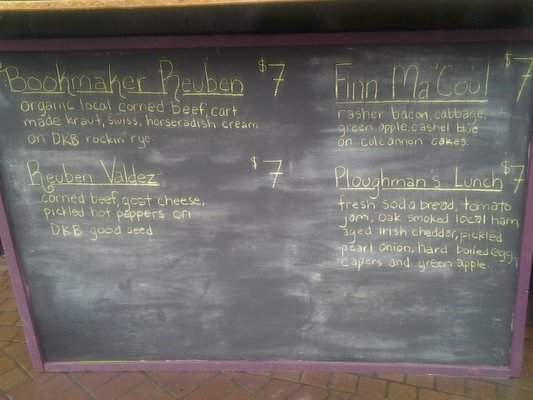 Bookmaker Reuben $7
organic local corned beef, cart
made kraut, swiss, horseradish cream
on DKB rockin' rye
Reuben Valdez $7
corned beef, goat cheese,
pickled hot peppers on
DKB good seed
Finn Ma'Coul $7
rasher bacon, cabbage,
green apple, cashel blue
on colcannon cakes.
Ploughman's Lunch $7
fresh soda bread, tomato
jam, oak smoked local ham
aged irish cheddar, pickled
pearl onion, hard boiled egg,
capers and green apple.